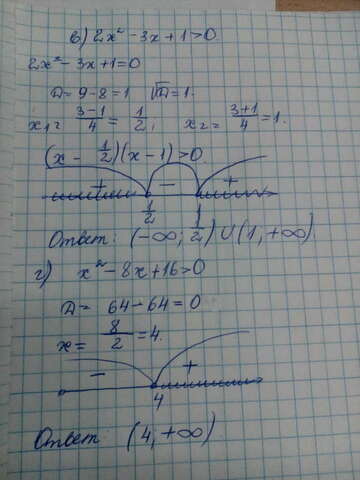 в) 2x² - 3x + 1 > 0
2x² - 3x + 1 = 0
D = 9 - 8 = 1 √D = 1.
x₁ = (3-1)/4 = 1/2, x₂ = (3+1)/4 = 1.
(x - 1/2)(x - 1) > 0
+ - +
1/2 1
Ответ: (-∞; 1/2) ∪ (1, +∞)
г) x² - 8x + 16 > 0
D = 64 - 64 = 0
x = 8/2 = 4.
- +
4
Ответ (4, +∞)